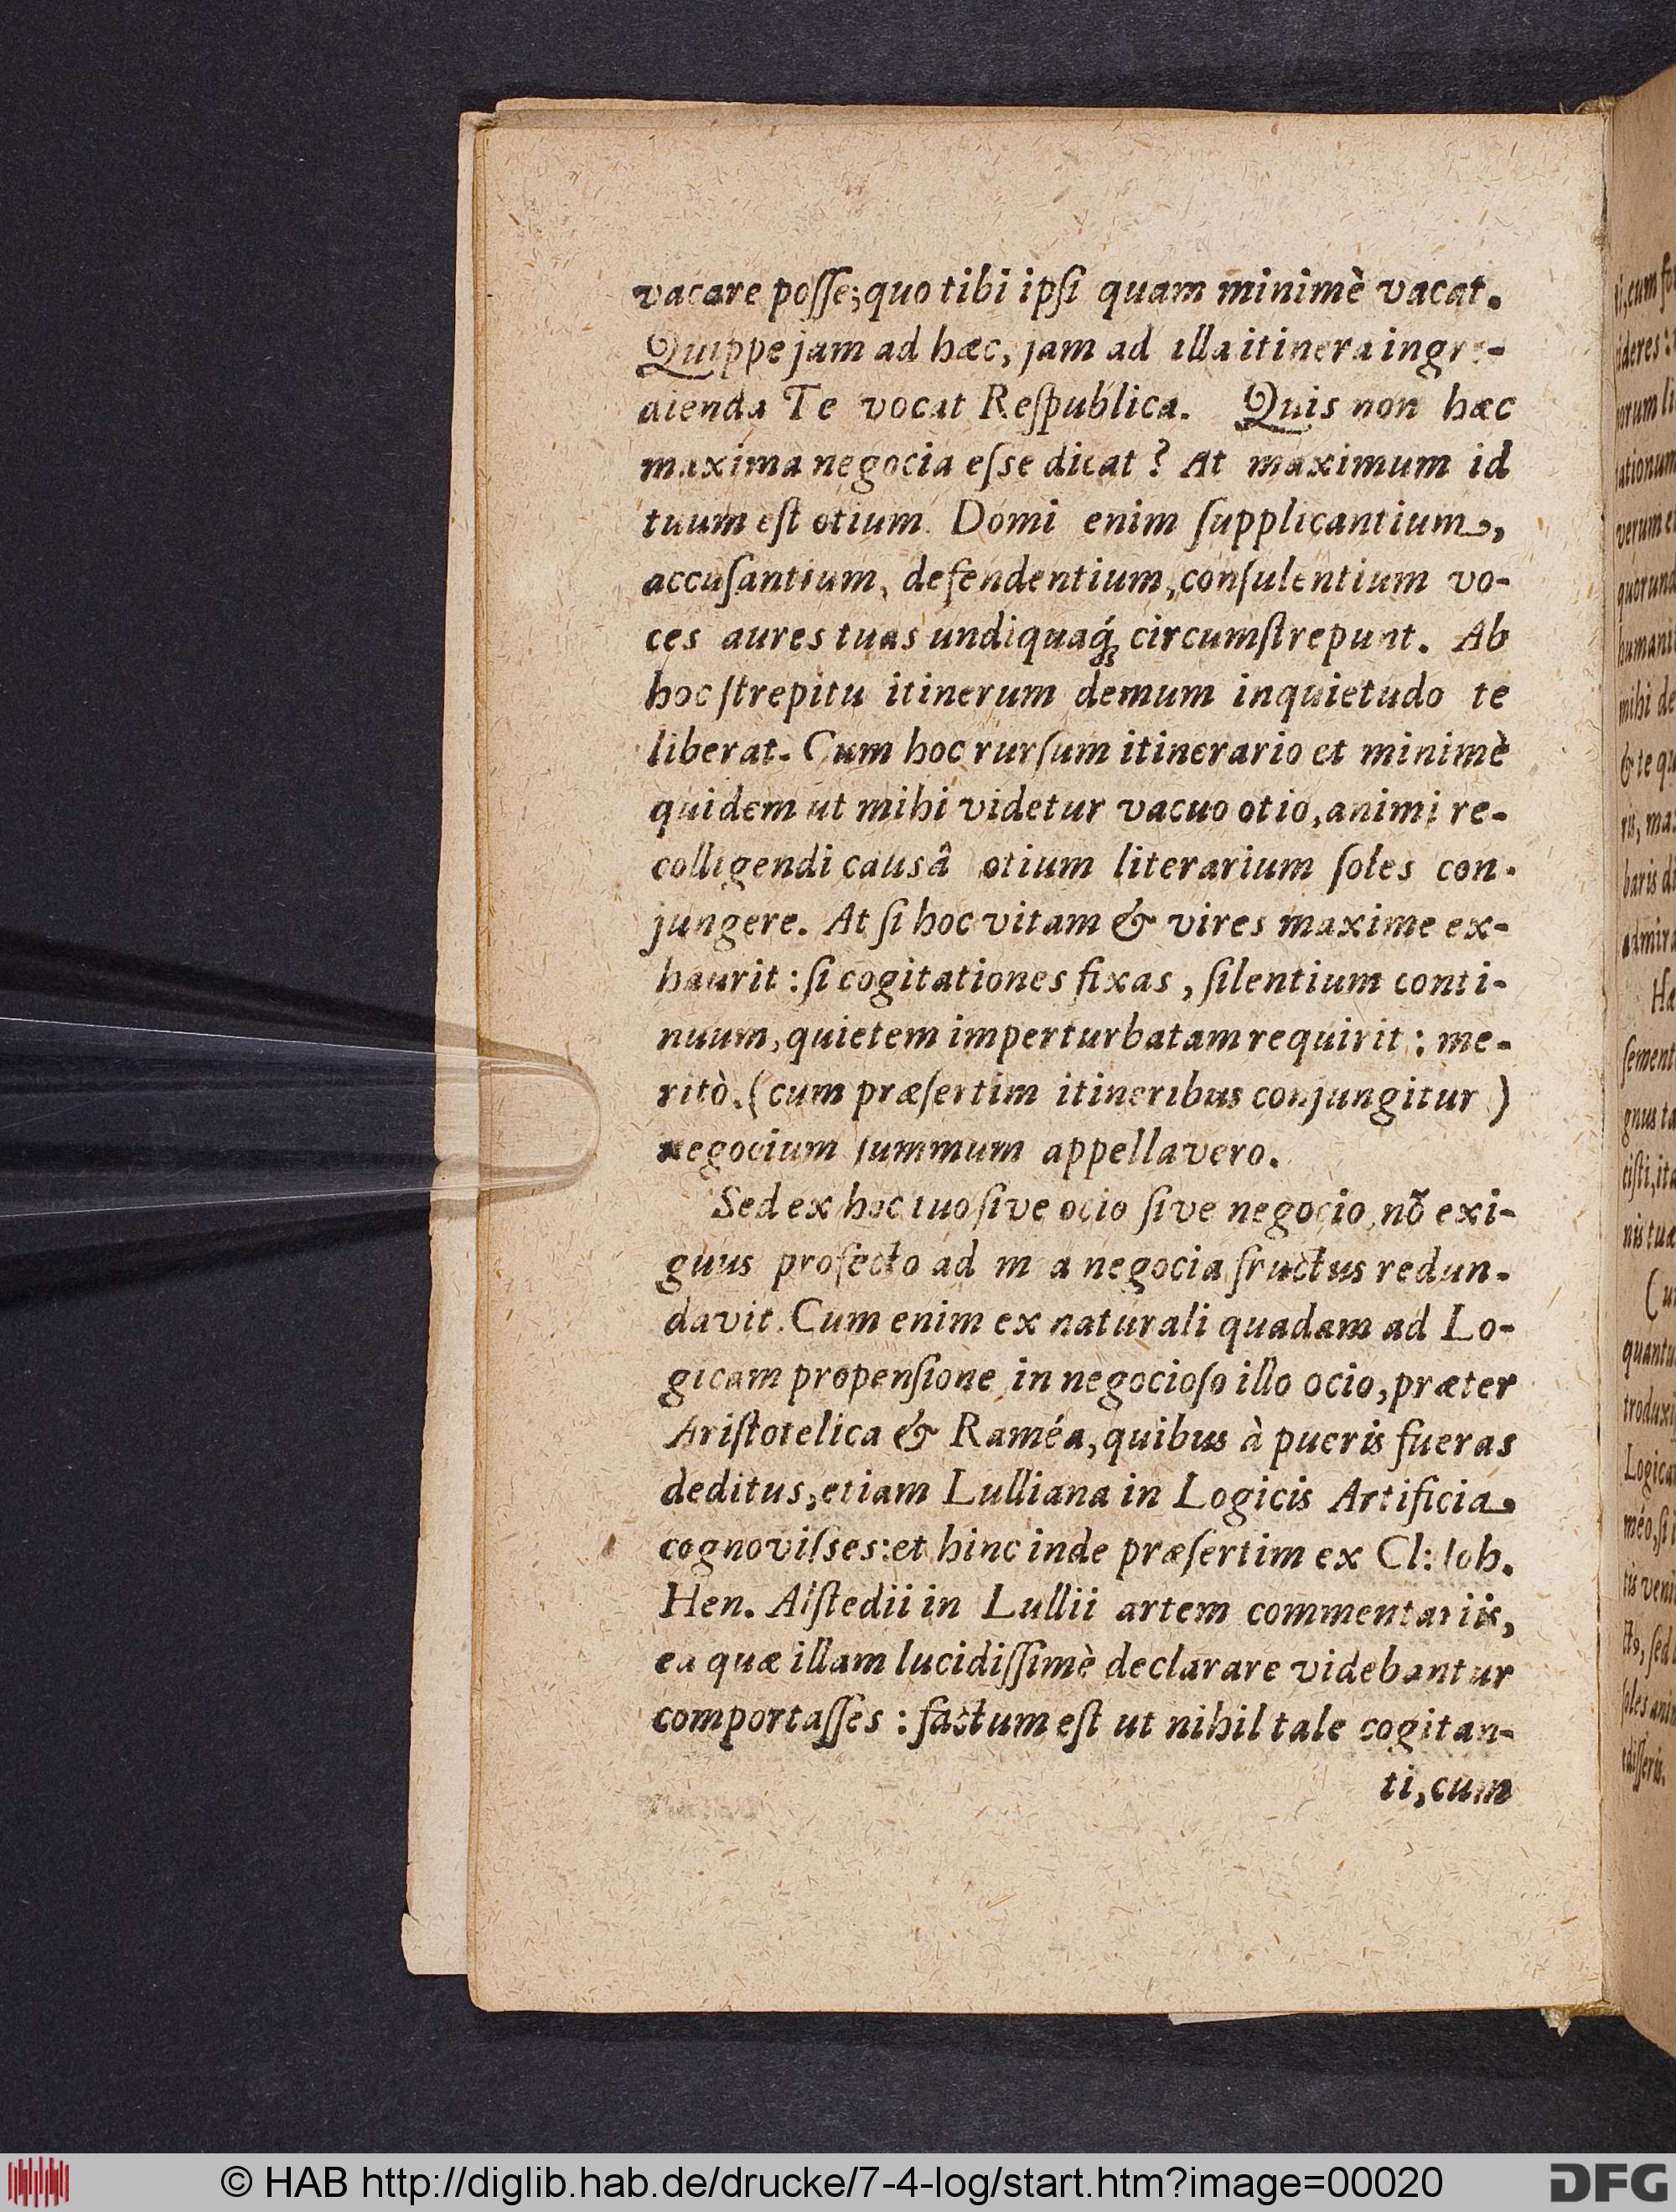 vacare poſſe; quo tibi ipſi quam minimè vacat.
Quippe jam ad hæc, jam ad illa itinera ingre-
dienda Te vocat Reſpublica. Quis non hæc
maxima negocia eſse dicat? At maximum id
tuum eſt otium. Domi enim ſupplicantium,
accuſantium, defendentium, conſulentium vo-
ces aures tuas undiquaq́ꝫ circumſtrepunt. Ab
hoc ſtrepitu itinerum demum inquietudo te
liberat. Cum hoc rurſum itinerario et minimè
quidem ut mihi videtur vacuo otio, animi re-
colligendi causâ otium literarium ſoles con-
jungere. At ſi hoc vitam & vires maxime ex-
haurit: ſi cogitationes fixas, ſilentium conti-
nuum, quietem imperturbatam requirit: me-
ritò. (cum præſertim itineribus conjungitur)
negocium ſummum appellavero.
Sed ex hoc tuo ſive ocio ſive negocio, nõ exi-
guus profecto ad m a negocia fructus redun-
davit. Cum enim ex naturali quadam ad Lo-
gicam propenſione, in negocioſo illo ocio, præter
Ariſtotelica & Raméa, quibus à pueris fueras
deditus, etiam Lulliana in Logicis Artificia
cognoviſses: et hinc inde præſertim ex Cl: Ioh.
Hen. Alſtedii in Lullii artem commentariis,
ea quæ illam lucidiſſimè declarare videbantur
comportaſſes: factum eſt ut nihil tale cogitan-
ti, cum
© HAB http://diglib.hab.de/drucke/7-4-log/start.htm?image=00020
DFG